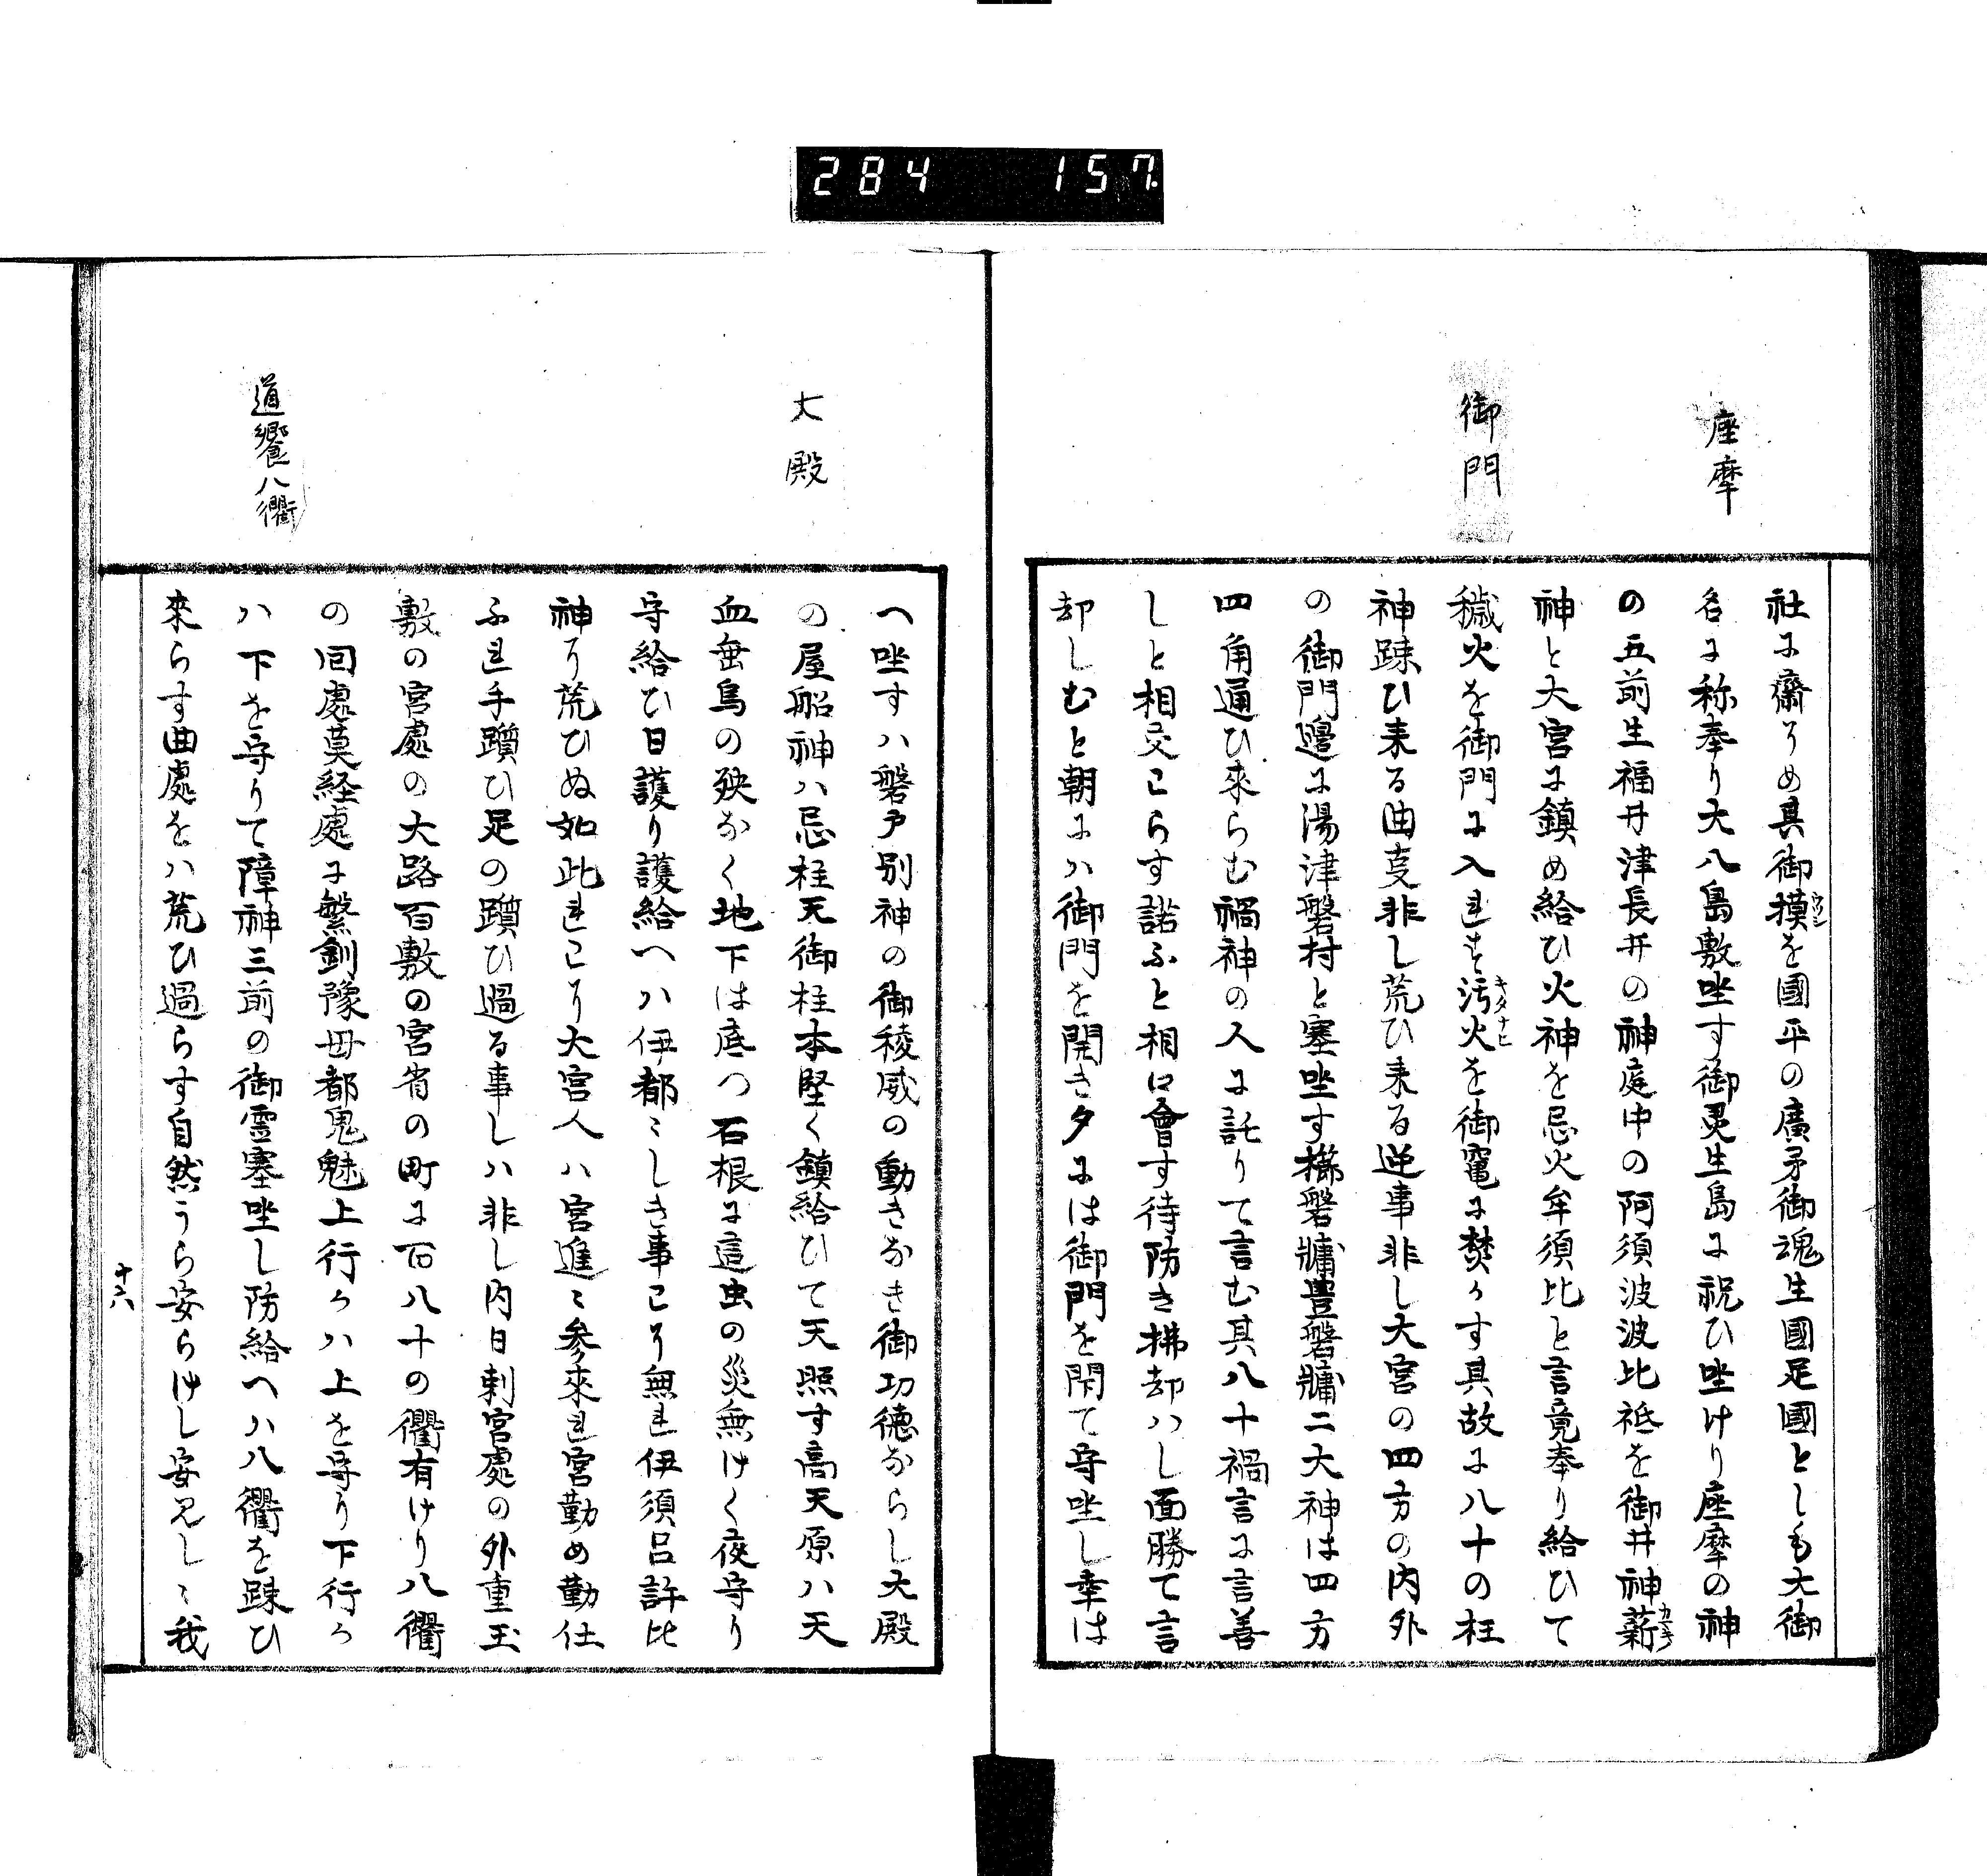 284 157.
座摩
御門
社に齋そめ其御摸を國平の廣矛御魂生國足國としも大御
名に称奉り大八島敷坐す御灵生島に祝ひ坐けり座摩の神
の五前生福井津長井の神庭中の阿須波波比祇を御井神薪
神と大宮に鎮め給ひ火神を忌火牟須比と言竟奉り給ひて
穢火を御門に入れす汚火を御竃に焚かす其故に八十の枉
キタナヒ
神踈ひ来る曲事非し荒ひ来る逆事非し大宮の四方の内外
の御門邊に湯津磐村と塞坐す櫛磐牖豊磐牖二大神は四方
四角通ひ來らむ禍神の人に託りて言む其八十禍言に言善
しと相交こらす諾ふと相口會す待防き拂却ハし面勝て言
却しむと朝にハ御門を開き夕には御門を閇て守坐し幸は
大殿
道饗八衢
へ坐すハ磐戸別神の御稜威の動きなき御功徳ならし大殿
の屋船神ハ忌柱天御柱本堅く鎮給ひて天照す高天原ハ天
血垂鳥の殃なく地下は底つ石根に這虫の災無けく夜守り
守給ひ日護り護給へハ伊都〻しき事こそ無れ伊須呂許比
神そ荒ひぬ如此れこそ大宮人ハ宮進〻参來れ宮勤め勤仕
ふれ手躓ひ足の躓ひ過る事しハ非し内日刺宮處の外重玉
敷の宮處の大路百敷の宮省の町に百八十の衢有けり八衢
の囘處莫経處に繁釗豫母都鬼魅上行かハ上を守り下行か
ハ下を守りて障神三前の御霊塞坐し防給へハ八衢を踈ひ
來らす曲處をハ荒ひ過らす自然うら安らけし安見し〻我
十六